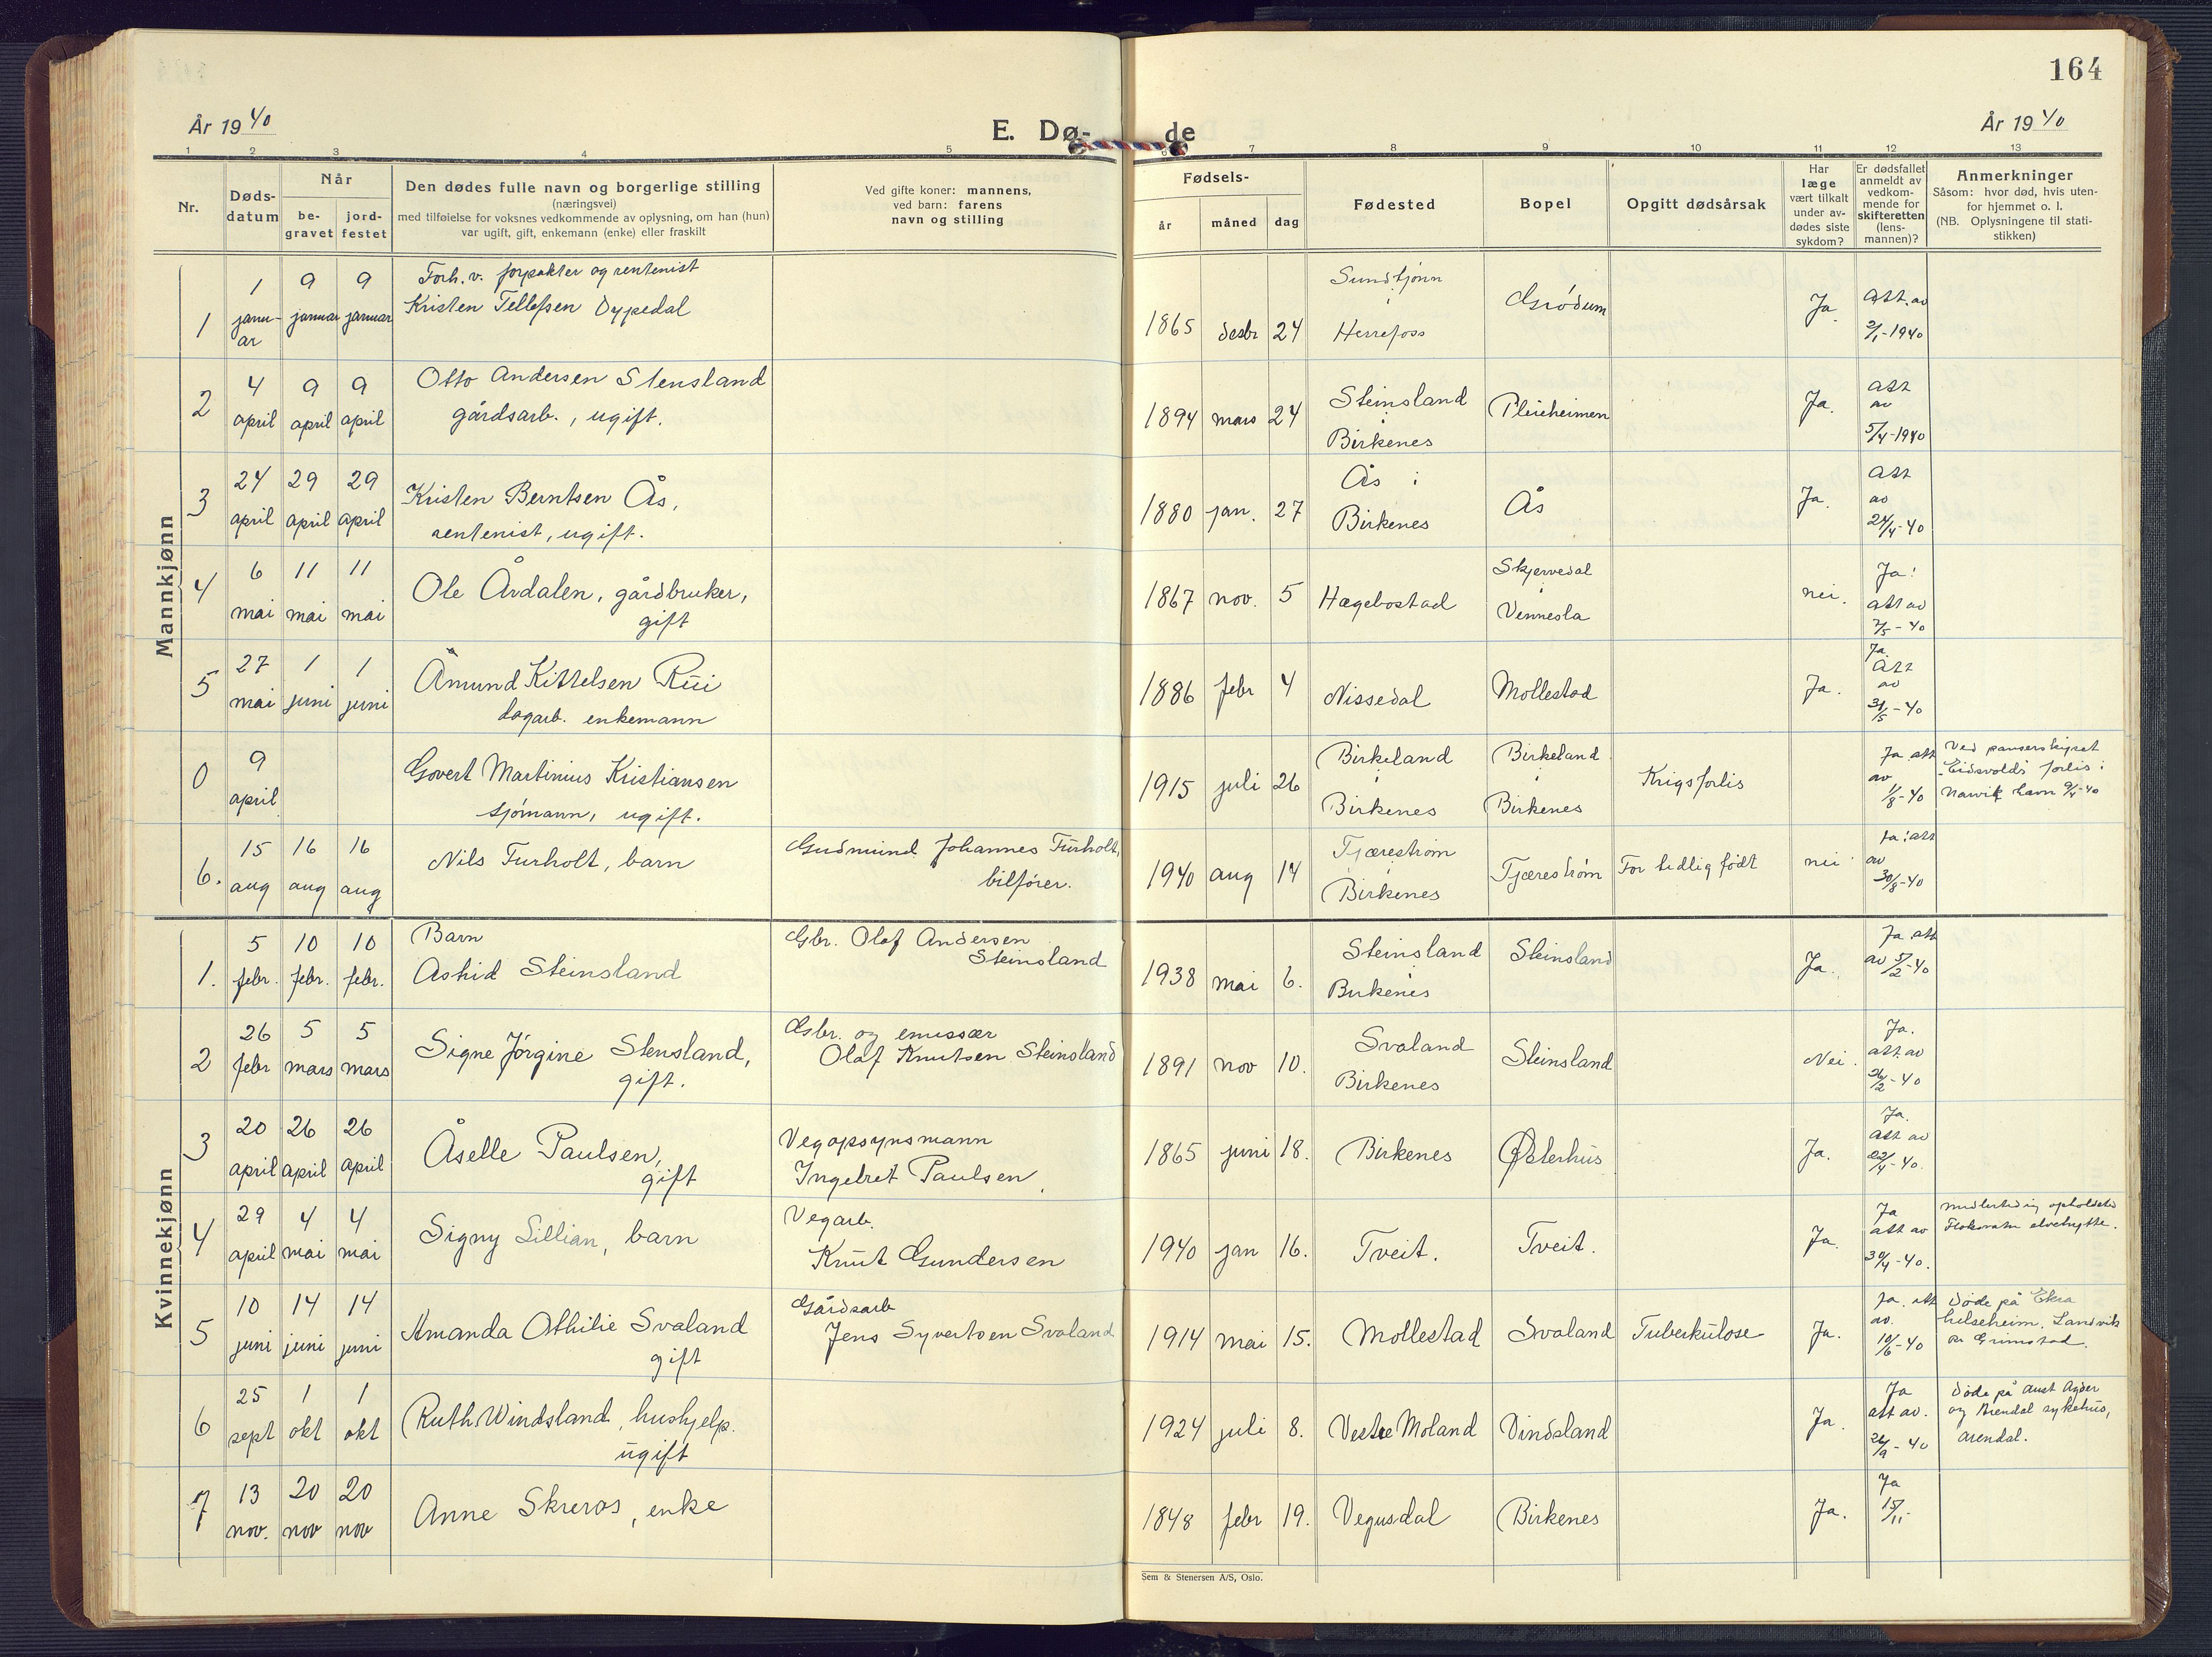 164
År 1940
E. Dø-
de
År 1940
1 2 3 4 5 6 7 8 9 10 11 12 13
Nr.
Døds-
datum
Når
be-
gravet
jord-
festet
Den dødes fulle navn og borgerlige stilling
(næringsvei)
med tilføielse for voksnes vedkommende av oplysning, om han (hun)
var ugift, gift, enkemann (enke) eller fraskilt
Ved gifte koner: mannens,
ved barn: farens
navn og stilling
Fødsels-
år
måned
dag
Fødested
Bopel
Opgitt dødsårsak
Har
læge
vært tilkalt
under av-
dødes siste
sykdom?
Er dødsfallet
anmeldt av
vedkom-
mende for
skifteretten
(lens-
mannen)?
Anmerkninger
Såsom: hvor død, hvis uten-
for hjemmet o. l.
(NB. Oplysningene til stati-
stikken)
Mannkjønn
1
1 9 9
janu- januar januar
ar
Forh. v. forpakter og rentenist
Kristen Tellefsen Dypedal
1865 desbr 24
Sundtjønn
i
Herrefoss
Grødum
Ja.
Att. av
2/1-1940
2
4 9 9
april april april
Otto Andersen Stensland
gårdsarb., ugift.
1894 mars 24
Steinsland
i
Birkenes
Pleieheimen
Ja.
Att
av
5/4-1940
3
24 29 29
april april april
Kristen Berntsen Ås,
rentenist, ugift.
1880 jan. 27
Ås i
Birkenes
Ås
Ja.
Att
av
24/4-40
4
6 11 11
mai mai mai
Ole Årdalen, gårdbruker,
gift
1867 nov. 5
Hægebostad
Skjervedal
i
Vennesla
nei.
Ja!
att av
7/5-40
5
27 1 1
mai juni juni
Åmund Kittelsen Rui
dagarb. enkemann
1886 febr 4
Nissedal
Mollestad
Ja.
Ja.
Att
av
31/5-40
0
9
april
Govert Martinius Kristiansen
sjømann, ugift.
1915 juli 26
Birkeland
i
Birkenes
Birkeland
i
Birkenes
Krigsforlis
Ja att
av
1/8-40
Ved panserskipet
"Eidsvolds" forlis i
Narvik havn 9/4-40
6.
15 16 16
aug aug aug
Nils Furholt, barn
Gudmund Johannes Furholt,
bilfører.
1940 aug 14
Tjærestrøm
i
Birkenes
Tjærestrøm
For tidlig født
nei
Ja! att
av
30/8-40
Kvinnekjønn
1.
5 10 10
febr. febr. febr.
Barn
Astrid Steinsland
Gbr. Olaf Andersen
Steinsland
1938 mai 6.
Steinsland
i
Birkenes
Steinsland
Ja.
Ja att
av 5/2-40
2
26 5 5
febr mars mars
Signe Jørgine Stensland,
gift.
Gbr. og emissær
Olaf Knutsen Steinsland
1891 nov 10.
Svaland
Birkenes
Steinsland
Nei.
Ja.
att av
26/2-40
3
20 26 26
april april april
Åselle Paulsen,
gift
Vegopsynsmann
Ingebret Paulsen.
1865 juni 18.
Birkenes
Østerhus
Ja.
Ja.
Att av
22/4-40.
4
29 4 4
april mai mai
Signy Lillian, barn
Vegarb.
Knut Gundersen
1940 jan 16.
Tveit.
Tveit.
Ja.
Ja
att av
30/4-40.
midlertidig opholdsted
5
10 14 14
juni juni juni
Amanda Othilie Svaland
gift
Gårdsarb
Jens Syvertsen Svaland
1914 mai 15.
Mollestad
Svaland
Tuberkulose
Ja.
Ja. att
av.
10/6-40
Døde på Ekra
helseheim, Landvik
pr Grimstad.
6
25 1 1
sept okt okt
Ruth Windsland, hushjelp.
ugift
1924 juli 8.
Vestre Moland
Vindsland
Ja.
Ja
att av.
26/9-40
Døde på Aust Agder
og Arendal sykehus,
Arendal.
7
13 20 20
nov. nov nov
Anne Skreros, enke
1848 febr 19.
Vegusdal
Birkenes
Ja.
Ja
15/11-
Sem & Stenersen A/S, Oslo.